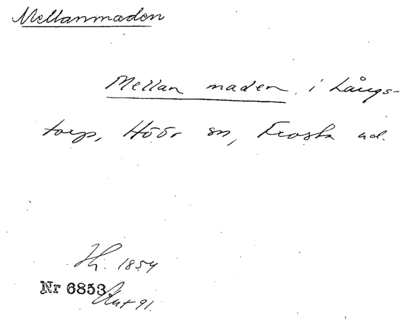 Mellanmaden
Mellan maden i Långs-
torp, Höör sn, Frosta hd.
H. 1854
Nr 6853
Akt 91.